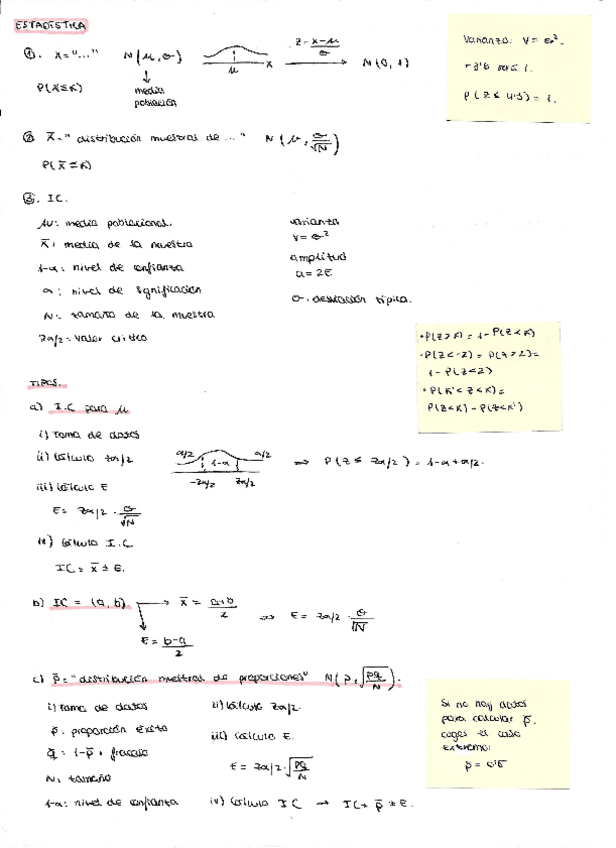 ESTADÍSTICA
①. X = "..." N(μ, σ) μ x Z = x-μ/σ N(0, 1)
P(X≤K) media
población
Varianza: V = σ².
P(Z ≤ 4'5) = 1.
②. X̄ = "distribución muestral de ..." N(μ, σ/√N)
P(X̄ ≤ K)
③. IC.
μ: media poblacional.
X̄: media de la muestra
1-α: nivel de confianza
α: nivel de significación
N: tamaño de la muestra
Zα/2 = valor crítico
varianza
V = σ²
amplitud
a = 2E
σ: desviación típica.
• P(Z>K) = 1 - P(Z<K)
• P(Z<-2) = P(Z>2) =
1 - P(Z<2)
• P(K'<Z<K) =
P(Z<K) - P(Z<K')
TIPOS.
a) I.C para μ
i) Toma de datos
ii) Cálculo Zα/2 α/2 1-α α/2 -Zα/2 Zα/2 ⇒ P(Z ≤ Zα/2) = 1-α+α/2.
iii) Cálculo E
E = Zα/2 · σ/√N
iv) Cálculo I.C.
IC = X̄ ± E.
b) IC = (a, b) → X̄ = a+b/2 ⇒ E = Zα/2 · σ/√N
E = b-a/2
c) p̄ = "distribución muestral de proporciones" N(p, √pq/N).
i) Toma de datos
p̄: proporción éxito
q̄ = 1-p̄: fracaso
N: tamaño
1-α: nivel de confianza
ii) Cálculo Zα/2.
iii) Cálculo E.
E = Zα/2 · √pq/N
iv) Cálculo IC → IC = p̄ ± E.
Si no hay datos
para calcular p̄,
coges el caso
extremo:
p = 0'5